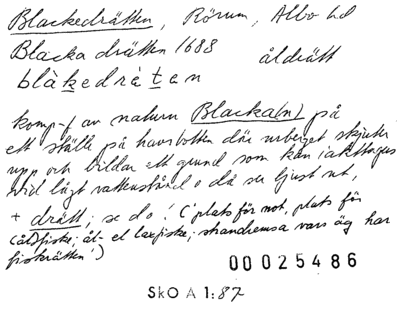 Blackedrätten, Rörum, Albo hd
Blacka drätten 1688 åldrätt
blàkedráten
komp-f av namn Blacka(n) på
ett ställe på havsbotten där urberget skjuter
upp och bildar ett grund som kan iakttagas
vid lågt vattenstånd o då ser ljust ut,
+ drätt; se do! ('plats för not, plats för
(ål)fiske; ål- el laxfiske; strandremsa vars äg har
fiskrätten')
00025486
SkO A 1:87